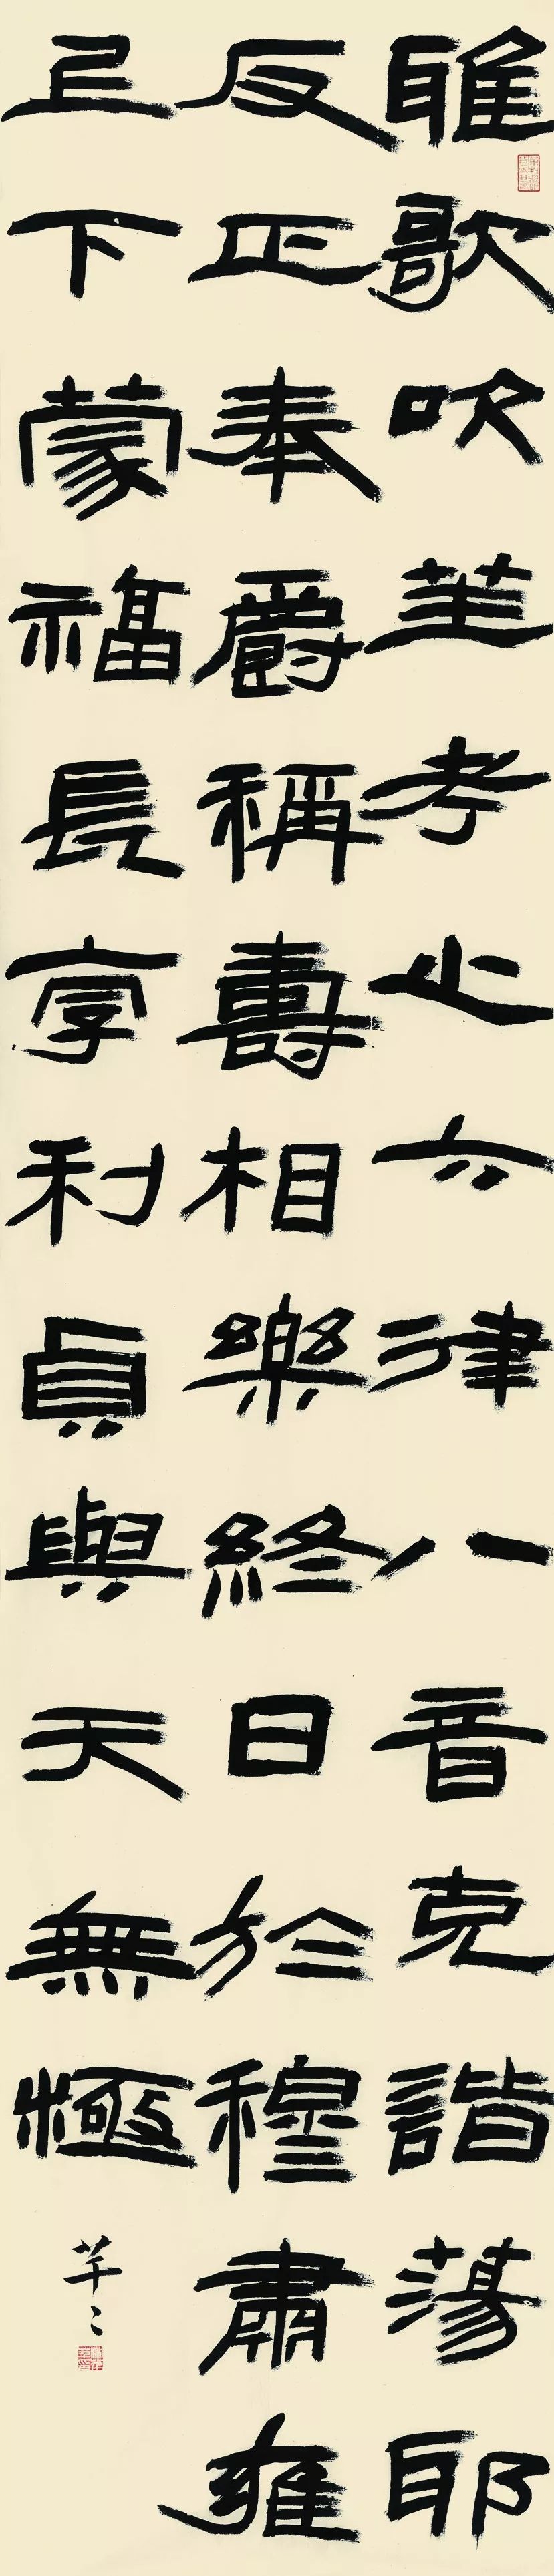 雅歌吹笙考之六律八音克諧蕩耶
反正奉爵稱壽相樂終日於穆肅雍
上下蒙福長享利貞與天無極
芊〻